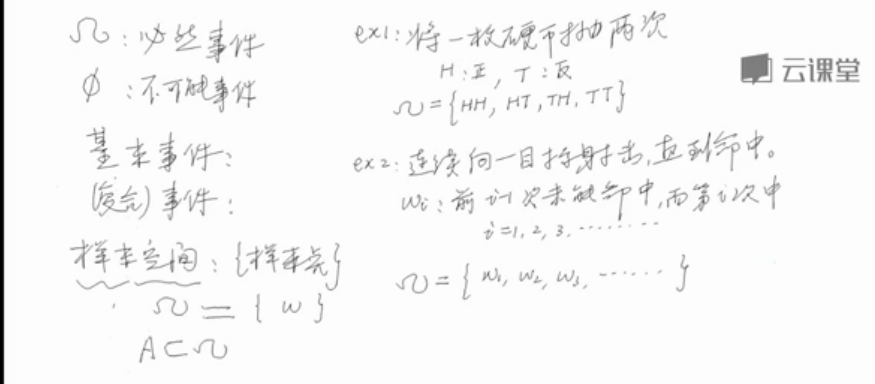 Ω：必然事件
φ：不可能事件
基本事件：
(复合)事件：
样本空间：{样本点}
Ω = { ω }
A⊂Ω
ex1：将一枚硬币抛两次
H：正，T：反
Ω={HH, HT, TH, TT}
ex2：连续向一目标射击，直到命中。
ωi：前i-1次未能命中，而第i次中
i=1, 2, 3, ………
Ω={ ω1, ω2, ω3, …… }
云课堂